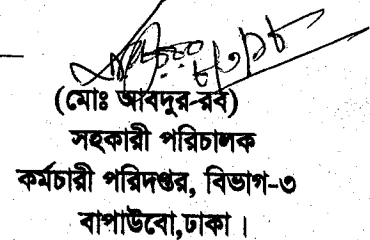 (মোঃ আবদুর রব)
সহকারী পরিচালক
কর্মচারী পরিদপ্তর, বিভাগ-৩
বাপাউবো,ঢাকা।